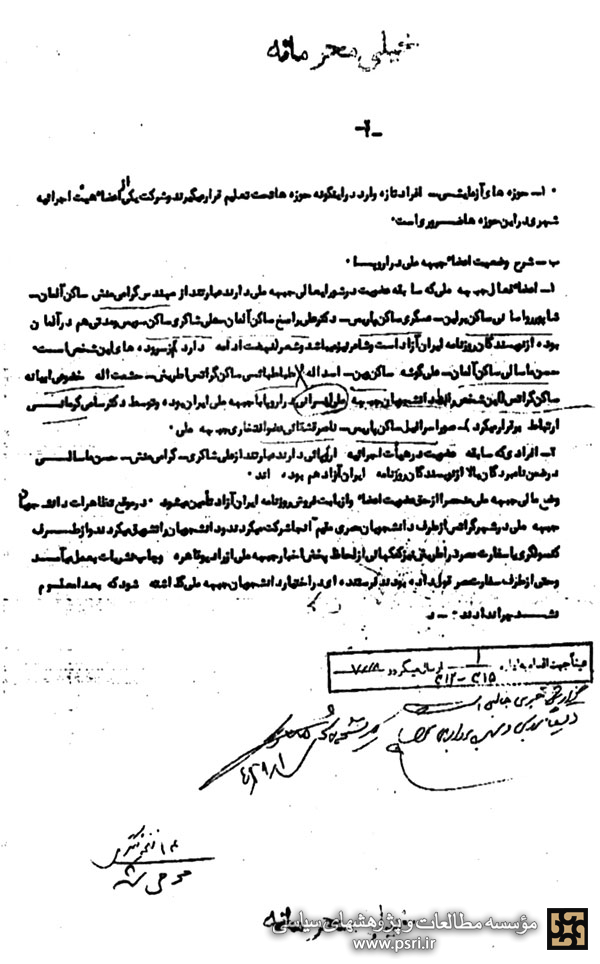 خیلی محرمانه
-۲-
۱- حوزه های آزمایشی - افراد تازه وارد در اینگونه حوزه ها تحت تعلیم قرار میگیرند و شرکت یکی از اعضاء هیئت اجرائیه
شهری در این حوزه ها ضروری است.
ب - شرح وضعیت اعضاء جبهه ملی در اروپا
۱- اعضاء فعال جبهه ملی که سابقه عضویت در شورایعالی جبهه ملی دارند عبارتند از مهندس گرامی منش ساکن آلمان -
شاپور ساکن برلین - عسگری ساکن پاریس - دکتر علی راسخ ساکن آلمان - علی شاکری ساکن سپس مدتی هم در آلمان
بوده از نویسندگان روزنامه ایران آزاد است و شاعر نیز میباشد و شعر دارد از سروده های این شخص است
حسن ماسالی ساکن آلمان - علی گوشه ساکن بن - اسداله طباطبائی ساکن گراتس اطریش - حشمت اله
ساکن گراتس این شخص رابط دانشجویان جبهه ملی در اروپا با جبهه ملی ایران بوده و توسط دکتر سامی کرمانی
ارتباط برقرار میکرد) - ساکن پاریس - ناصر قشقائی عضو افتخاری جبهه ملی.
۲- افرادی که سابقه عضویت در هیأت اجرائیه اروپائی دارند عبارتند از علی شاکری - گرامی منش - حسن ماسالی
در ضمن نامبردگان بالا از نویسندگان روزنامه ایران آزاد هم بوده اند.
وضع مالی جبهه ملی منحصرا از حق عضویت اعضاء و از بابت فروش روزنامه ایران آزاد تأمین میشود. در موقع تظاهرات دانشجویان
جبهه ملی در شهر گراتس از طرف دانشجویان مصری مقیم آنجا شرکت میکردند و دانشجویان را تشویق میکردند و از طرف
کنسولگری یا سفارت مصر در اطریش نیز کمکهائی از لحاظ پخش اخبار جبهه ملی از رادیو قاهره و چاپ نشریات بعمل میآمد
وحتی از طرف سفارت مصر قول داده بودند فرستنده ای در اختیار دانشجویان جبهه ملی گذاشته شود که بعدا معلوم
نشد چرا ندادند. - د
عیناً جهت اقدام به اداره ۳۱۵-۳۱۲ ارسال میگردد
گزارش خبری جالبی است
خیلی محرمانه
مؤسسه مطالعات و پژوهشهای سیاسی
www.psri.ir